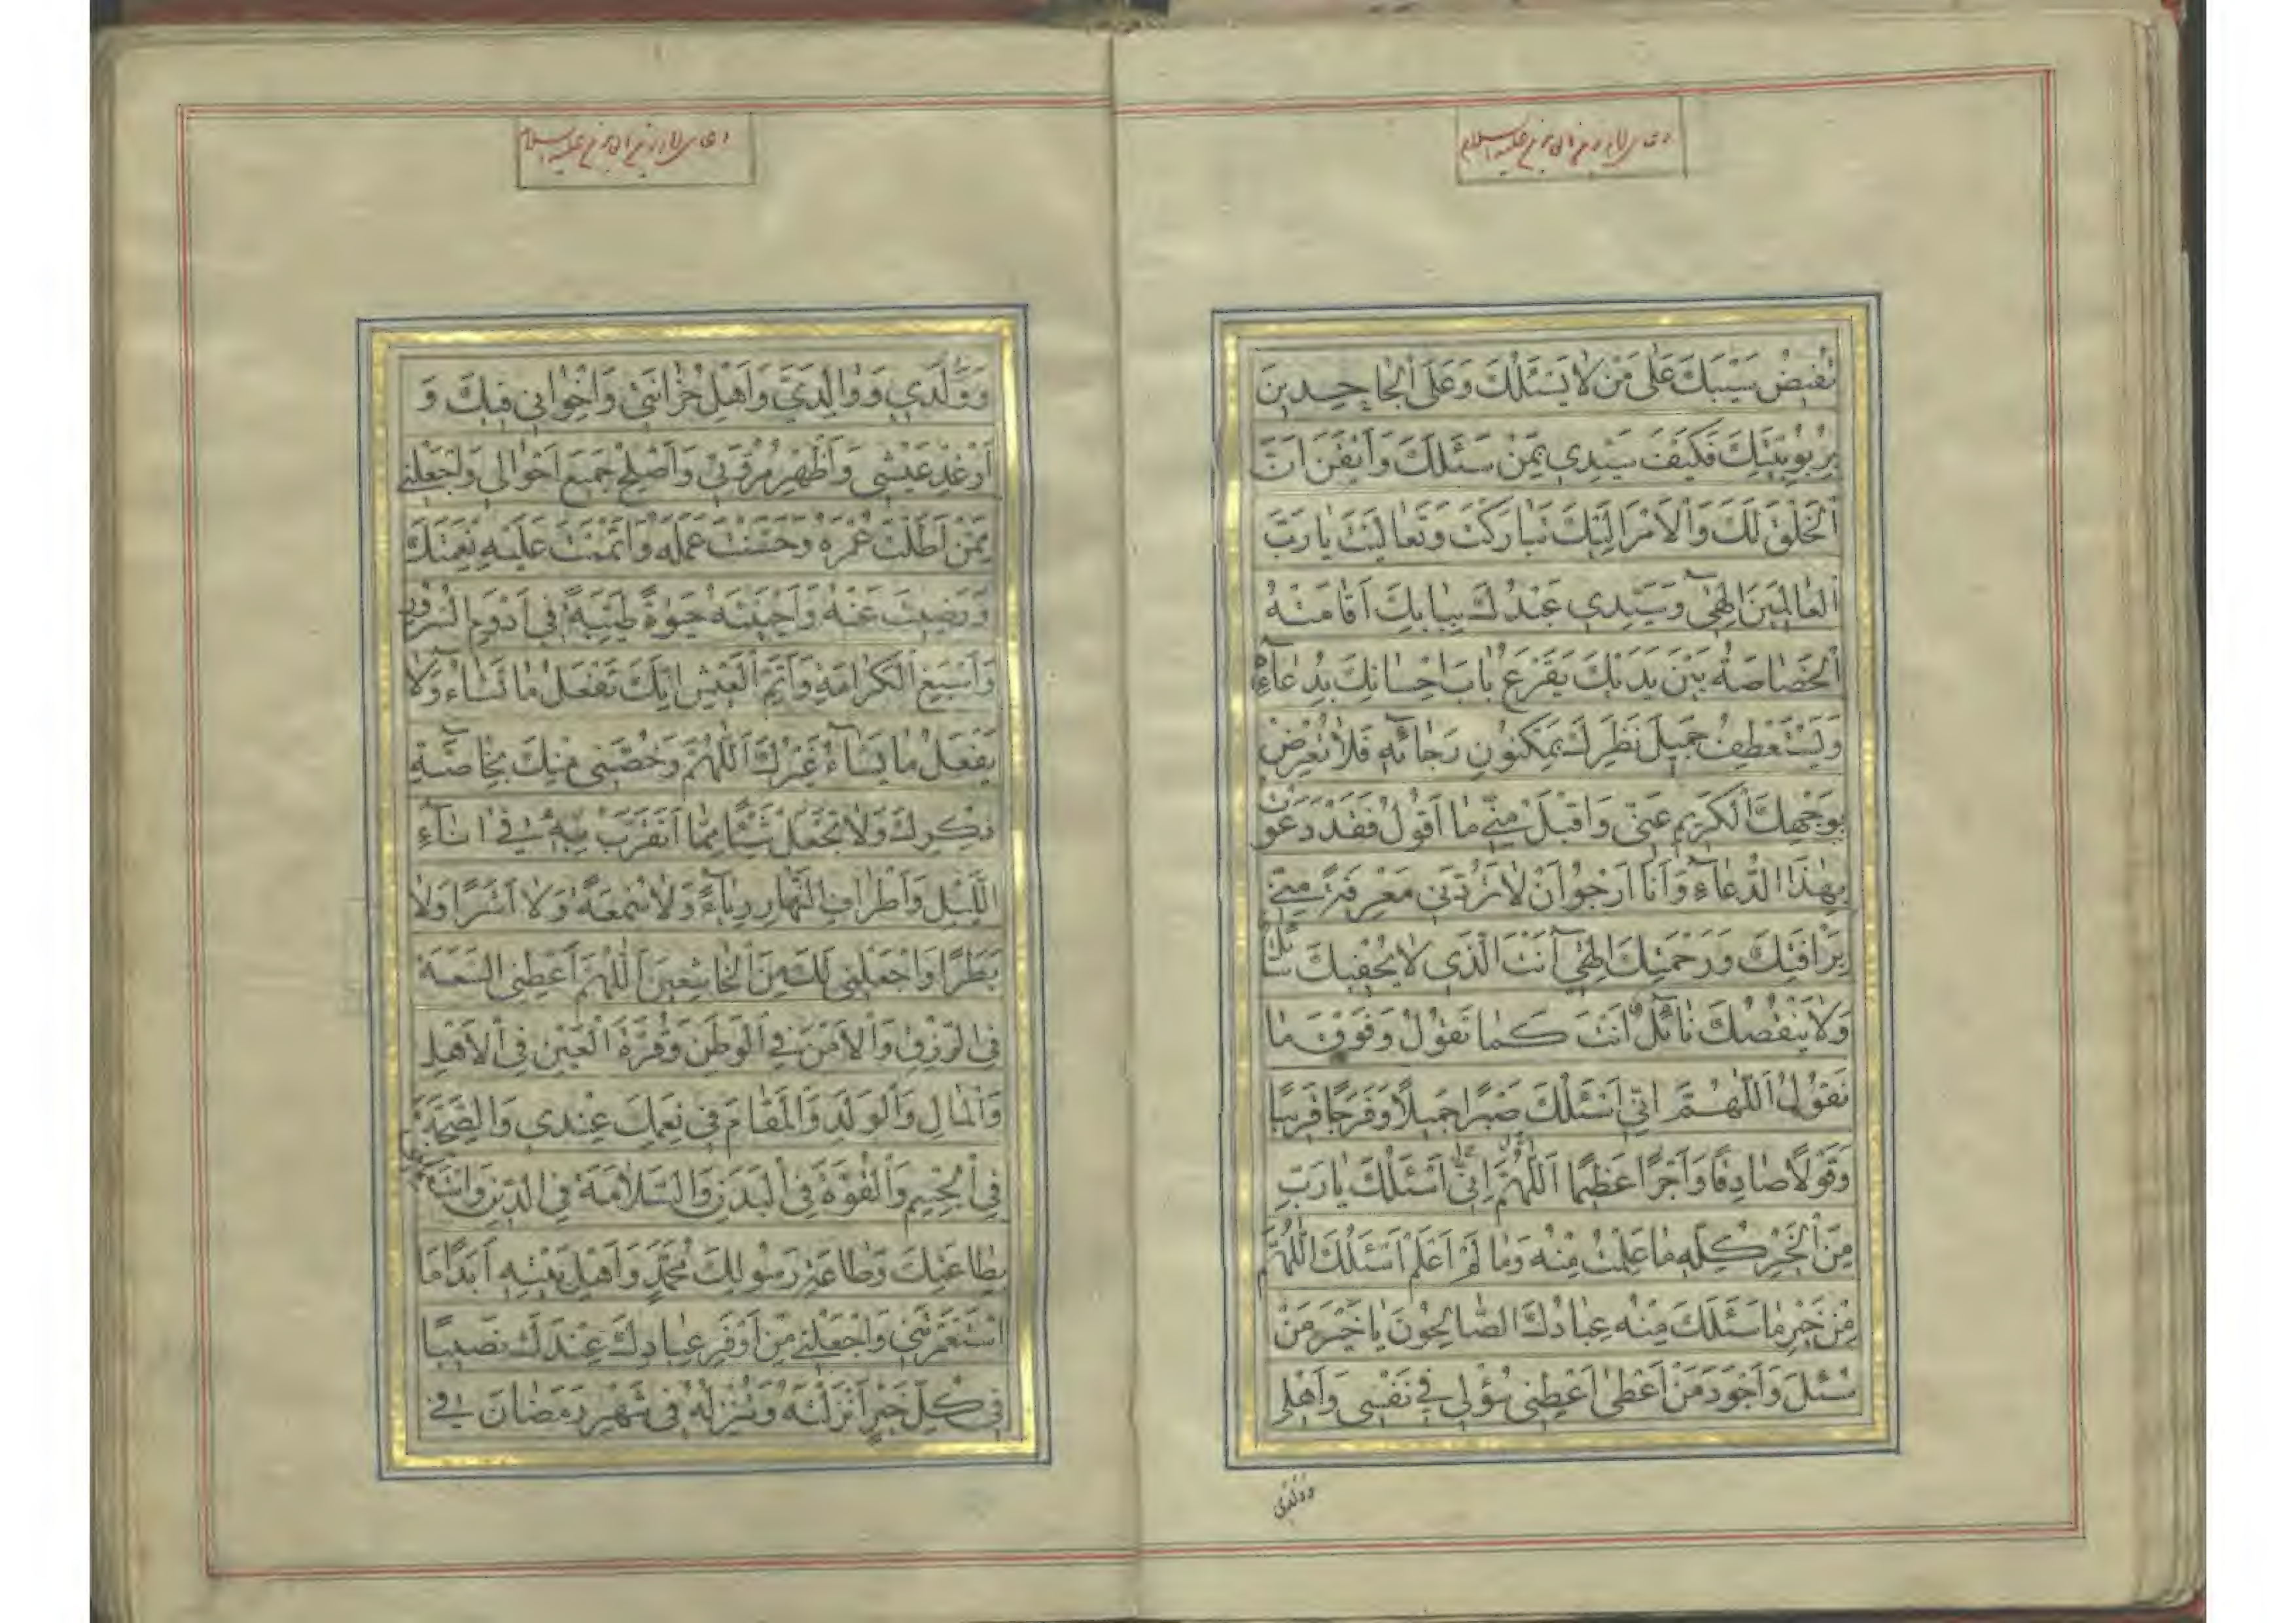 تُفِيضُ سَيْبَكَ عَلٰى مَنْ لَا يَسْئَلُكَ وَعَلَى الْجَاحِدِينَ
بِرُبُوبِيَّتِكَ فَكَيْفَ سَيِّدِي بِمَنْ سَئَلَكَ وَأَيْقَنَ أَنَّ
الْخَلْقَ لَكَ وَالْأَمْرَ إِلَيْكَ تَبَارَكْتَ وَتَعَالَيْتَ يَا رَبَّ
الْعَالَمِينَ إِلٰهِي وَسَيِّدِي عَبْدُكَ بِبَابِكَ أَقَامَتْهُ
الْخَصَاصَةُ بَيْنَ يَدَيْكَ يَقْرَعُ بَابَ إِحْسَانِكَ بِدُعَآئِهِ
وَيَسْتَعْطِفُ جَمِيلَ نَظَرِكَ بِمَكْنُونِ رَجَائِهِ فَلَا تُعْرِضْ
بِوَجْهِكَ الْكَرِيمِ عَنِّي وَاقْبَلْ مِنِّي مَا أَقُولُ فَقَدْ دَعَوْتُ
بِهٰذَا الدُّعَآءِ وَأَنَا أَرْجُو أَنْ لَا تَرُدَّنِي مَعْرِفَةً مِنِّي
بِرَأْفَتِكَ وَرَحْمَتِكَ إِلٰهِي أَنْتَ الَّذِي لَا يُحْفِيكَ سَائِلٌ
وَلَا يَنْقُصُكَ نَائِلٌ أَنْتَ كَمَا تَقُولُ وَفَوْقَ مَا
نَقُولُ اَللّٰهُمَّ إِنِّي أَسْئَلُكَ صَبْرًا جَمِيلًا وَفَرَجًا قَرِيبًا
وَقَوْلًا صَادِقًا وَأَجْرًا عَظِيمًا اَللّٰهُمَّ إِنِّي أَسْئَلُكَ يَا رَبِّ
مِنَ الْخَيْرِ كُلِّهِ مَا عَلِمْتُ مِنْهُ وَمَا لَمْ أَعْلَمْ أَسْئَلُكَ اللّٰهُمَّ
مِنْ خَيْرِ مَا سَئَلَكَ مِنْهُ عِبَادُكَ الصَّالِحُونَ يَا خَيْرَ مَنْ
سُئِلَ وَأَجْوَدَ مَنْ أَعْطٰى أَعْطِنِي سُؤْلِي فِي نَفْسِي وَأَهْلِي
وَوَلَدِي
وَوَلَدِي وَوَالِدَيَّ وَأَهْلِ حُزَانَتِي وَإِخْوَانِي فِيكَ وَ
أَرْغِدْ عَيْشِي وَأَظْهِرْ مُرُوَّتِي وَأَصْلِحْ جَمِيعَ أَحْوَالِي وَاجْعَلْنِي
مِمَّنْ أَطَلْتَ عُمْرَهُ وَحَسَّنْتَ عَمَلَهُ وَأَتْمَمْتَ عَلَيْهِ نِعْمَتَكَ
وَرَضِيتَ عَنْهُ وَأَحْيَيْتَهُ حَيٰوةً طَيِّبَةً فِي أَدْوَمِ السُّرُورِ
وَأَسْبَغِ الْكَرَامَةِ وَأَتَمِّ الْعَيْشِ إِنَّكَ تَفْعَلُ مَا تَشَآءُ وَلَا
يَفْعَلُ مَا يَشَآءُ غَيْرُكَ اَللّٰهُمَّ وَخُصَّنِي مِنْكَ بِخَاصَّةِ
ذِكْرِكَ وَلَا تَجْعَلْ شَيْئًا مِمَّا أَتَقَرَّبُ بِهِ فِي اٰنَآءِ
اللَّيْلِ وَأَطْرَافِ النَّهَارِ رِيَآءً وَلَا سُمْعَةً وَلَا أَشَرًا وَلَا
بَطَرًا وَاجْعَلْنِي لَكَ مِنَ الْخَاشِعِينَ اَللّٰهُمَّ أَعْطِنِي السَّعَةَ
فِي الرِّزْقِ وَالْأَمْنَ فِي الْوَطَنِ وَقُرَّةَ الْعَيْنِ فِي الْأَهْلِ
وَالْمَالِ وَالْوَلَدِ وَالْمَقَامَ فِي نِعَمِكَ عِنْدِي وَالصِّحَّةَ
فِي الْجِسْمِ وَالْقُوَّةَ فِي الْبَدَنِ وَالسَّلَامَةَ فِي الدِّينِ وَاسْتَعْمِلْنِي
بِطَاعَتِكَ وَطَاعَةِ رَسُولِكَ مُحَمَّدٍ وَأَهْلِ بَيْتِهِ أَبَدًا مَا
اسْتَعْمَرْتَنِي وَاجْعَلْنِي مِنْ أَوْفَرِ عِبَادِكَ عِنْدَكَ نَصِيبًا
فِي كُلِّ خَيْرٍ أَنْزَلْتَهُ وَتُنْزِلُهُ فِي شَهْرِ رَمَضَانَ فِي